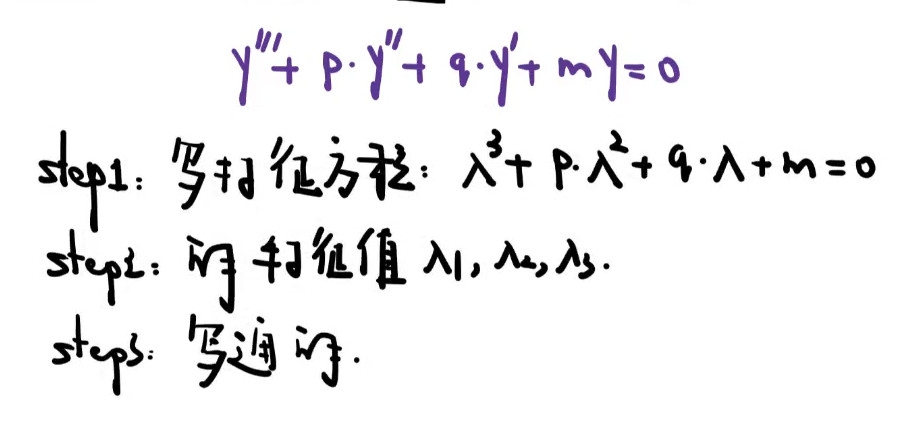 y'''+ p·y''+ q·y'+ my=0
step1: 写特征方程: λ³+ p·λ²+ q·λ+m=0
step2: 解特征值 λ1, λ2, λ3.
step3: 写通解.